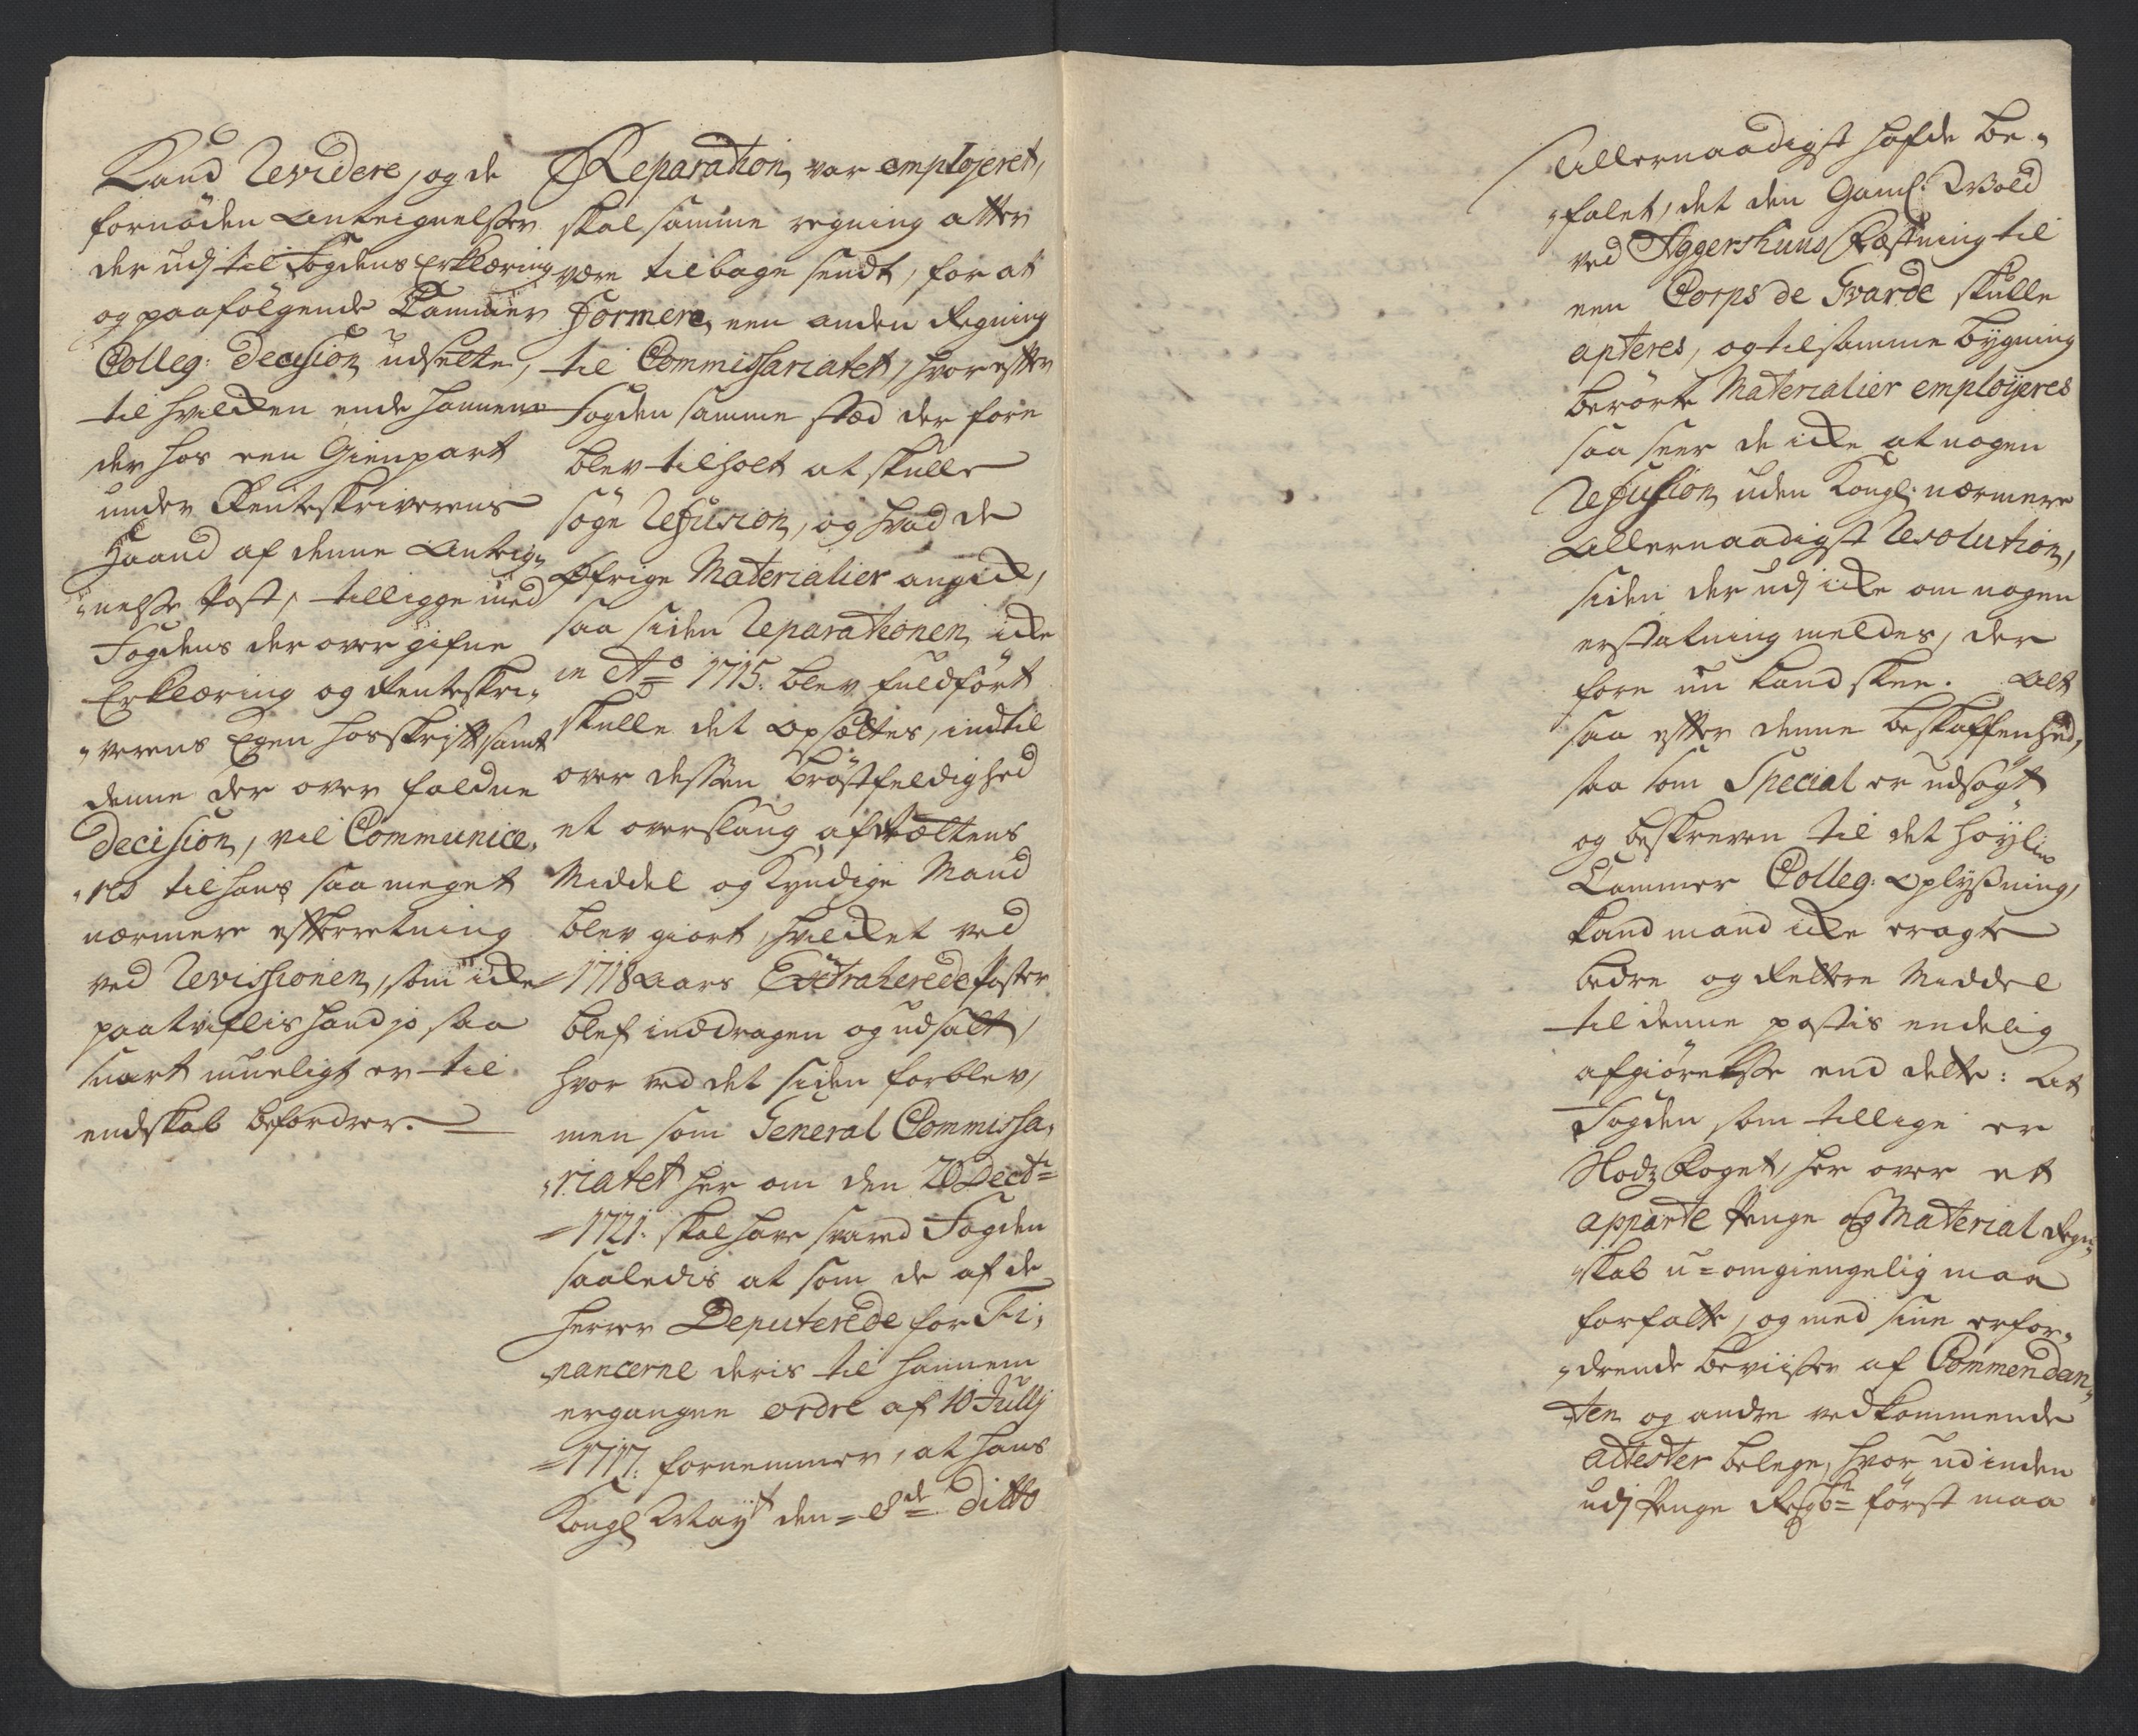 Kand Revidere, og de
fornöden Anteignelser
der udj til Fogdens Erklæring
og paafölgende Cammer
Colleg: Decision udsette,
til hvilcken ende hannem
der hos een Gienpart
under Renteskriverens
Haand af denne Anteig„
„nelse Post, tilligge med
Fogdens der over gifne
Erklæring og Renteskri„
„verens Egen hosskrifft, samt
denne der over faldne
Decision, vil Communice„
„res til hans saa meget
nærmere efterretning
ved Revissionen, som icke
paatviflis hand jo saa
snart mueligt er til
endskab befordrer.
Reparation var employeret,
skal samme regning atter
være tilbage sendt, for at
Formere een anden Regning
til Commissariatet, hvor effter
Fogden samme stæd der fore
blev tilholt at skulle
söge Refusion, og hvad de
Öfrige Materialier angick,
saa siden Reparationen icke
in Ao 1715: blev fuldfört
skulle det Opsættes, indtil
over dessen bröstfeldighed
et overslaug af Rættens
Middel og Kyndige Mænd
blev giort, hvilcket ved
1718 Aars Extraherede Poster
blef inddragen og udsatt,
hvor ved det siden forblev,
men som General Commissa„
„riatet her om den 20 Decbr
1721: skal have svared Fogden
saaledis at som de af de
Herrer Deputerede for Fi„
nancerne deris til hannem
ergangne ordre af 10 Julij
1717: fornemmer, at hans
Kongl Mayt den 8de ditto
Allernaadigst hafde be„
„falet, det den Gaml: Vold
ved Aggershuus Fæstning til
een Corps de Gvarde skulle
apteres, og til samme bygning
berörte Materialier employeres
saa seer de icke at nogen
Refusion uden Kongl: nærmere
Allernaadigst Resolution,
siden der udj icke om nogen
erstatning meldes, der
fore nu kand skee. Alt
saa efter denne beskaffenhed,
saa som Special er udsögt
og beskreven til det höylig
Cammer Colleg: Oplysning,
kand mand icke eragte
bedre og Rettere Middel
til denne postis endelig
afgiörelse end dette: At
Fogden som tillige er
her over et
apparte Penge og Material Regn„
„skab u=omgiengelig maa
forfatte, og med sine erfor„
„drende beviiser af Commendan„
ten og andre vedkommende
Attester belege, hvor ud inden
udj Penge först maa